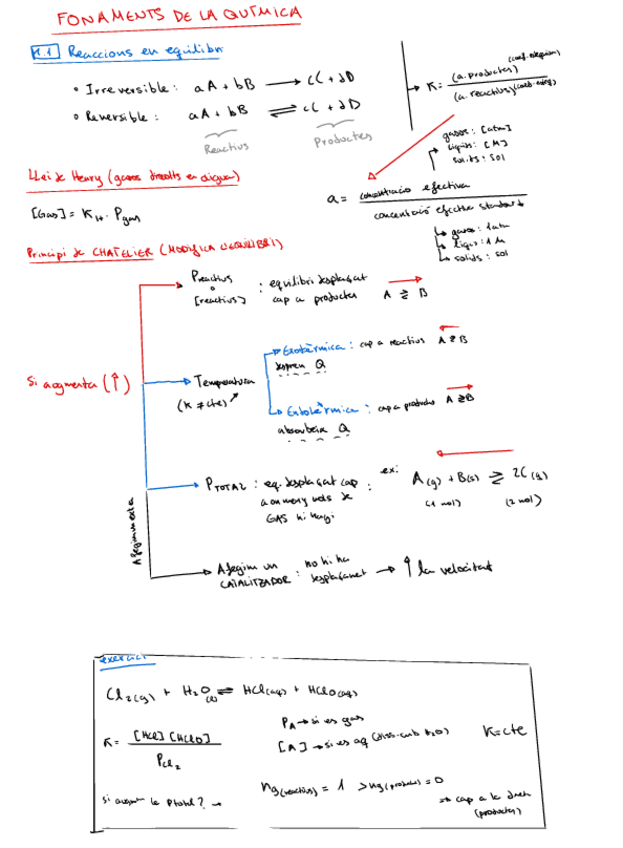 FONAMENTS DE LA QUÍMICA
1.1 Reaccions en equilibri
• Irreversible: aA + bB ⟶ cC + dD
• Reversible: aA + bB ⇌ cC + dD
Reactius
Productes
K = (a. productes) / (a. reactius)
gasos: [atm]
líquits: [M]
solits: sol
a = concentració efectiva / concentració efectiva standard
gasos: 1 atm
líqus: 1 M
solids: sol
Llei de Henry (gasos dissolts en aigua)
[Gas] = K_H · P_gas
Principi de CHATELIER (MODIFICA L'EQUILIBRI)
Si augmenta (↑)
Reactius
o
[reactius]
: equilibri desplaçat
cap a productes A ⇄ B
Temperatura
(K ≠ cte)
Exotèrmica: cap a reactius A ⇄ B
Q
Endotèrmica: cap a productes A ⇄ B
absorbeix Q
P TOTAL: eq. desplaçat cap
a on menys mols de
GAS hi hagi
ex: A(g) + B(s) ⇄ 2C(g)
(1 mol) (2 mol)
Afegim un
CATALITZADOR
: no hi ha
desplaçament → ↑ la velocitat
exercici
Cl₂(g) + H₂O(l) ⇌ HCl(aq) + HClO(aq)
K = [HCl] [HClO] / P Cl₂
P_A → si es gas
[A] → si es aq (diss. amb H₂O)
K = cte
si augm la Ptotal? →
ng(reactius) = 1 > ng(productes) = 0
⇒ cap a la dreta
(productes)